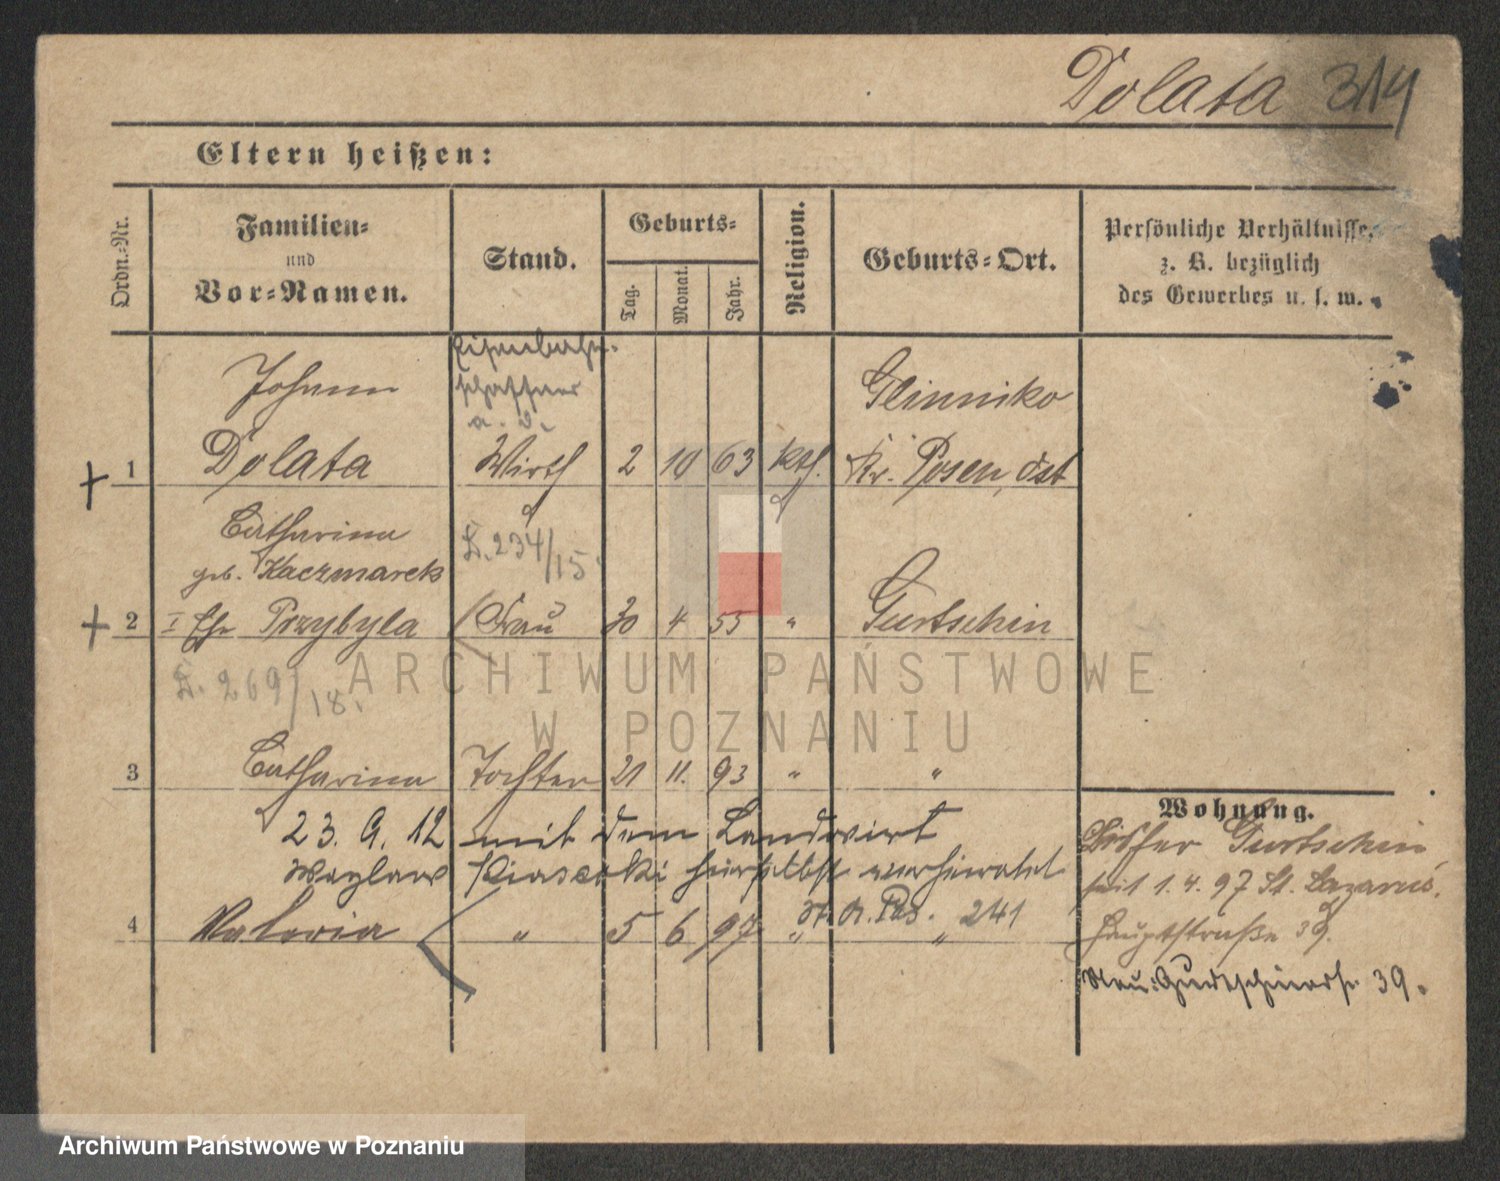 Dolata 314
Eltern heißen:
Ordn.-Nr.
Familien-
und
Vor-Namen.
Stand.
Geburts-
Tag.
Monat.
Jahr.
Religion.
Geburts-Ort.
Persönliche Verhältnisse,
z. B. bezüglich
des Gewerbes u. s. w.
Eisenbahn-
schaffner
a. D.
Johann
Glinniko
1 Dolata Wirth 2 10 63 kth. Kr. Posen, Ost
Catharina
geb. Kaczmarek
S. 234/15.
2 I Ehe Przybyla Frau 30 4 55 " Gurtschin
S. 269/18.
ARCHIWUM PAŃSTWOWE
W POZNANIU
3 Catharina Tochter 21 11. 93 " "
23. 9. 12 mit dem Landwirt
hierselbst verheiratet
St. A. Pos. 241
4 Valeria " 5 6 97 " "
Wohnung.
Bisher Gurtschin,
seit 1.4.97 St. Lazarus,
Hauptstraße 39.
Neu: Gurtschinerstr. 39.
Archiwum Państwowe w Poznaniu